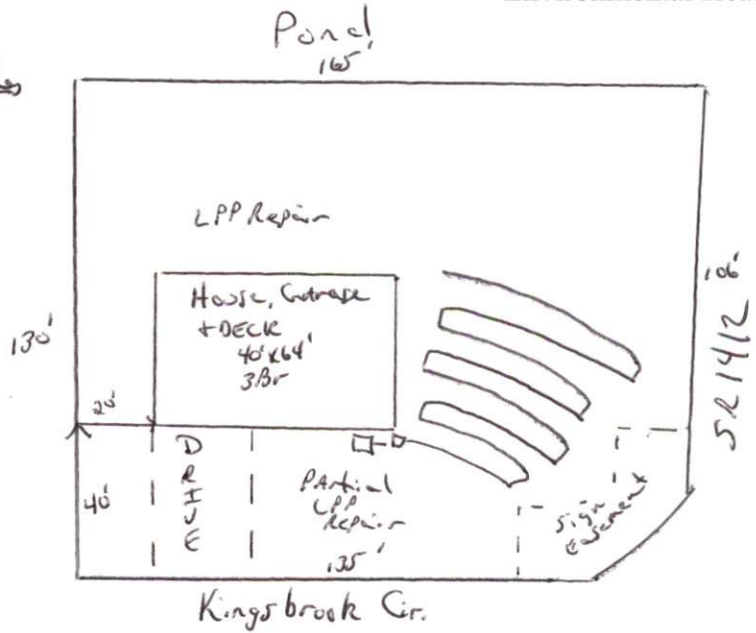 Pond
165'
LPP Repair
House, Garage
+ DECK
40'x64'
3Br
130'
106'
SR 1412
20'
40'
DRIVE
Partial
LPP
Repair
135'
Sign
easement
Kingsbrook Cir.